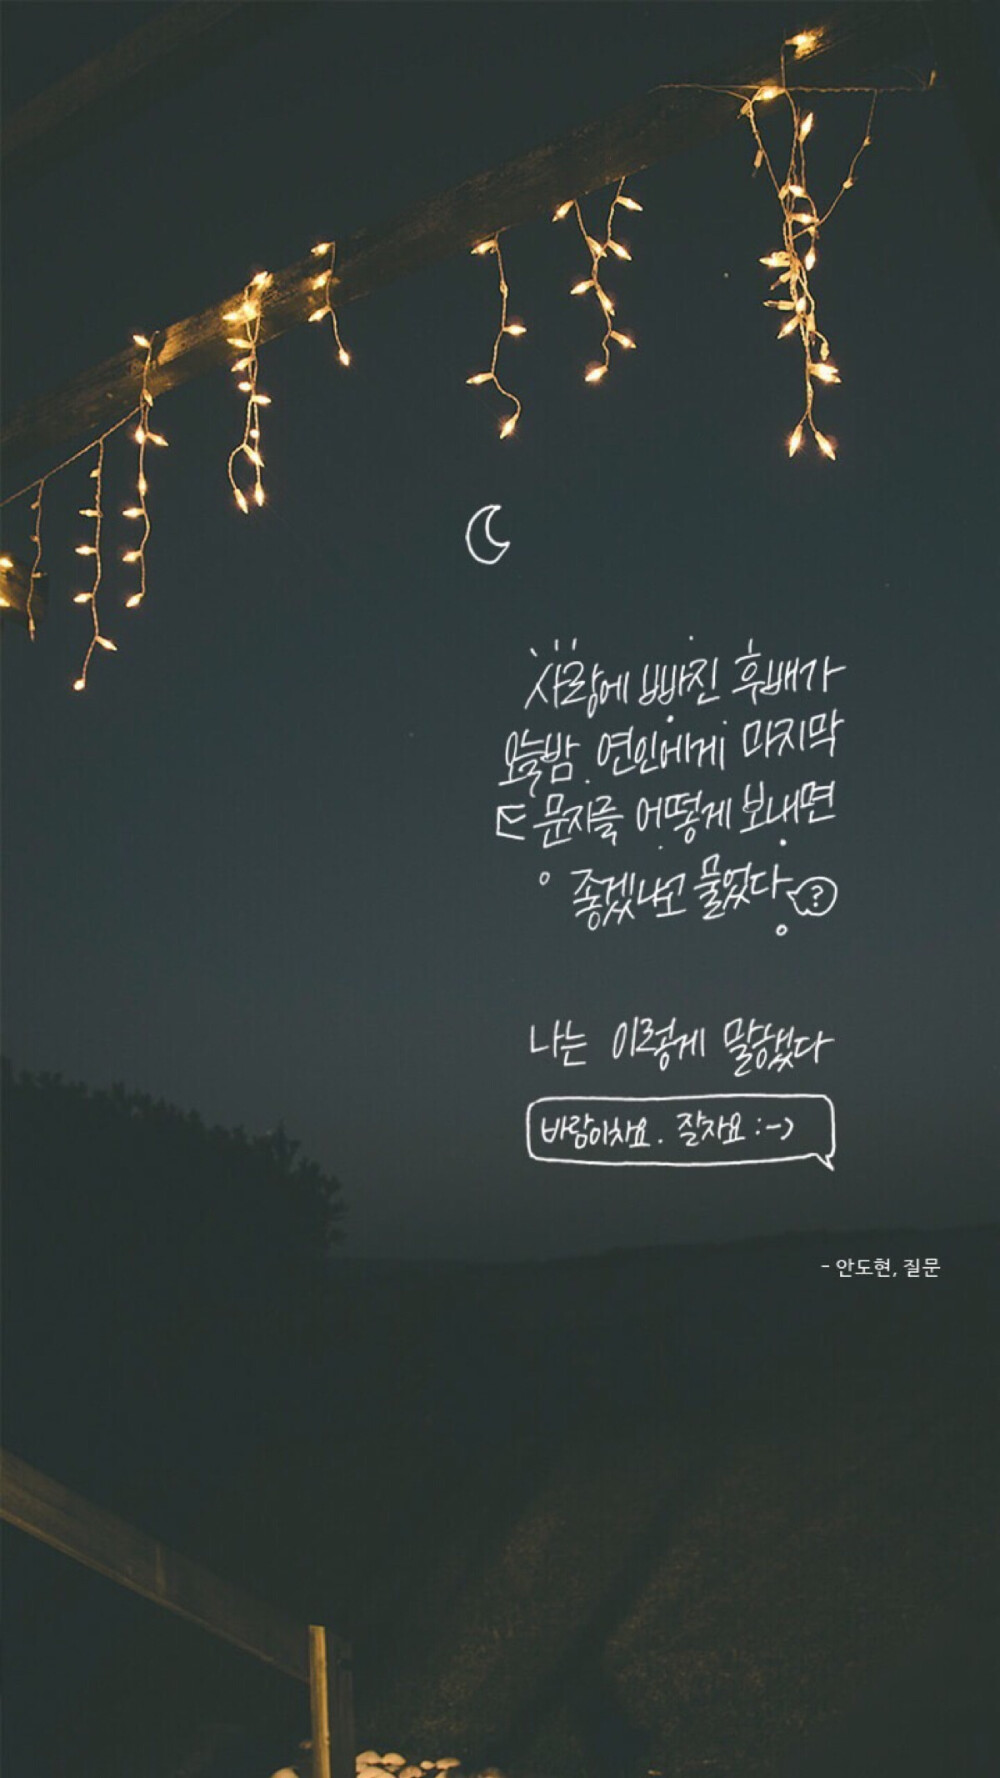 사랑에 빠진 후배가
오늘밤 연인에게 마지막
문자를 어떻게 보내면
좋겠냐고 물었다 ?
나는 이렇게 말했다
바람이차요. 잘자요 :-)
- 안도현, 질문